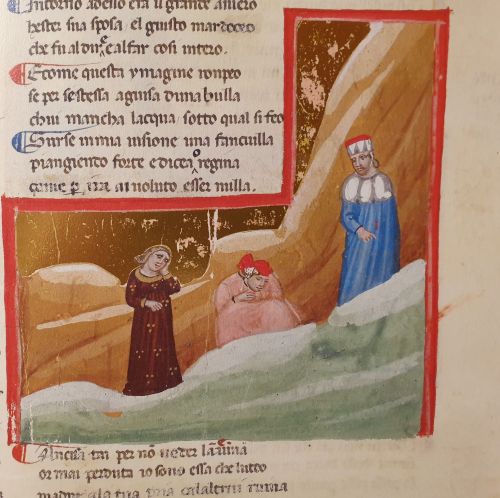 Intorno adesso era il grande asuero
hester sua sposa el giusto mardoceo
che fu al dir e alfar cosi intero.
E come questa ymagine rompeo
se per se stessa aguisa duna bulla
chui mancha lacqua sotto qual si feo
Surse in mia uisione una fanciulla
piangiendo forte e dicea o regina
come p ira ai uoluto esser nulla.
Ancisa tai per nō ueder lauina
or mai perduta io sono essa che luteo
madre ala tua pria calaltrui ruina